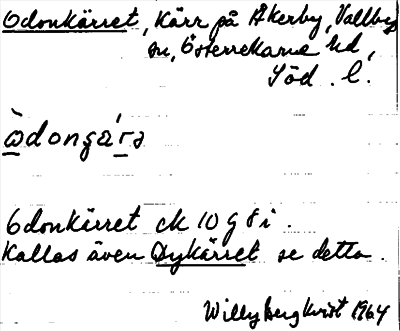 Odonkärret, Kärr på Åkerby, Vallby
sn, Österrekarne hd,
Söd. l.
òdongára
Odonkärret ek 10 g 8 i.
Kallas även Dykärret se detta.
Willy Bergkvist 1964